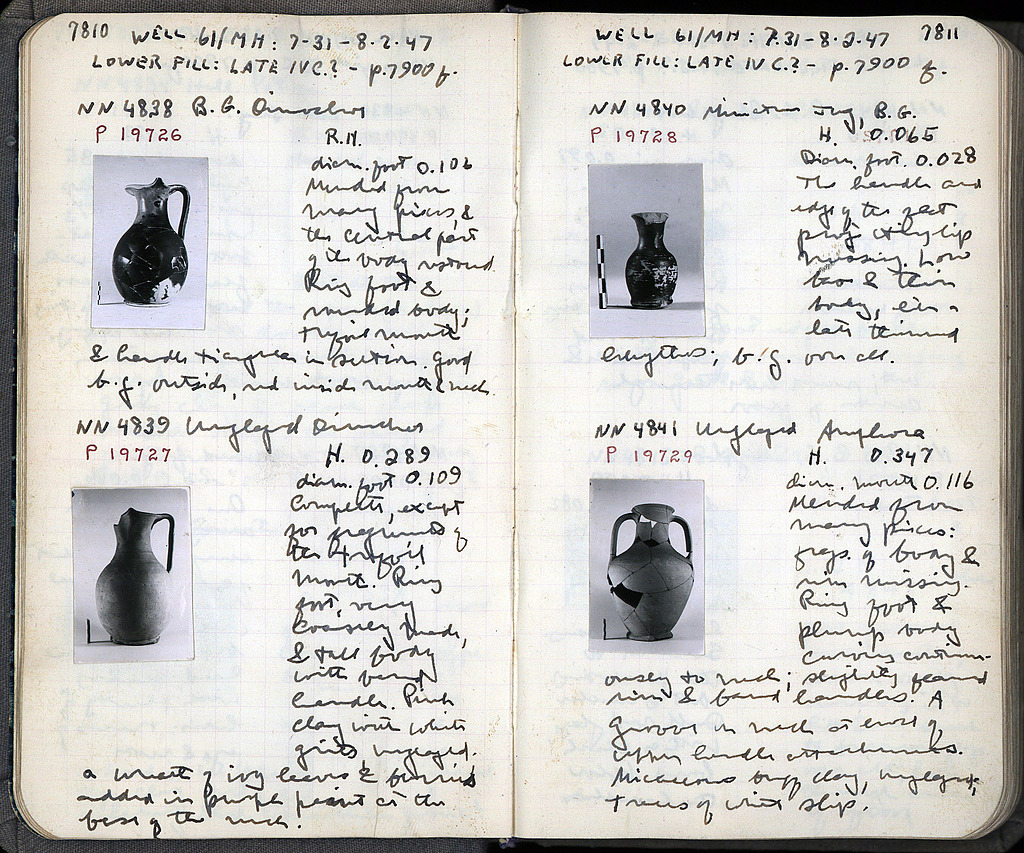 7810 WELL 61/MH: 7-31-8-2-47
LOWER FILL: LATE IV C.? - p.7900 f.
NN 4838 B.G. Oinochos
P 19726 R.H.
diam. foot 0.106
Mended from
many pieces, &
the central part
of the body restored
Ring foot &
rounded body;
trefoil mouth
& handle triangular in section. Good
b.g. outside, red inside mouth & neck.
NN 4839 Unglazed Oinochos
P 19727 H. 0.289
diam. foot 0.109
Complete, except
for fragments of
the trefoil
mouth. Ring
foot, very
coarsely made,
& tall body
with band
handle. Pink
clay with white
grits unglazed.
a wreath of ivy leaves & berries
added in purple paint at the
base of the neck.
WELL 61/MH: 7.31-8-2-47 7811
LOWER FILL: LATE IV C.? - p.7900 f.
NN 4840 Miniature Jug, B.G.
P 19728 H. 0.065
Diam. foot. 0.028
The handle and
edge of the
lip
missing. Low
base & thin
body, like a
late thinned
lekythos; b.g. over all.
NN 4841 Unglazed Amphora
P 19729 H. 0.347
diam. mouth 0.116
Mended from
many pieces:
frags. of body &
rim missing.
Ring foot &
plump body
curving continu-
ously to neck; slightly flared
rim & band handles. A
groove on neck at level of
upper handle attachments.
Micaceous buff clay, unglazed;
traces of white slip.